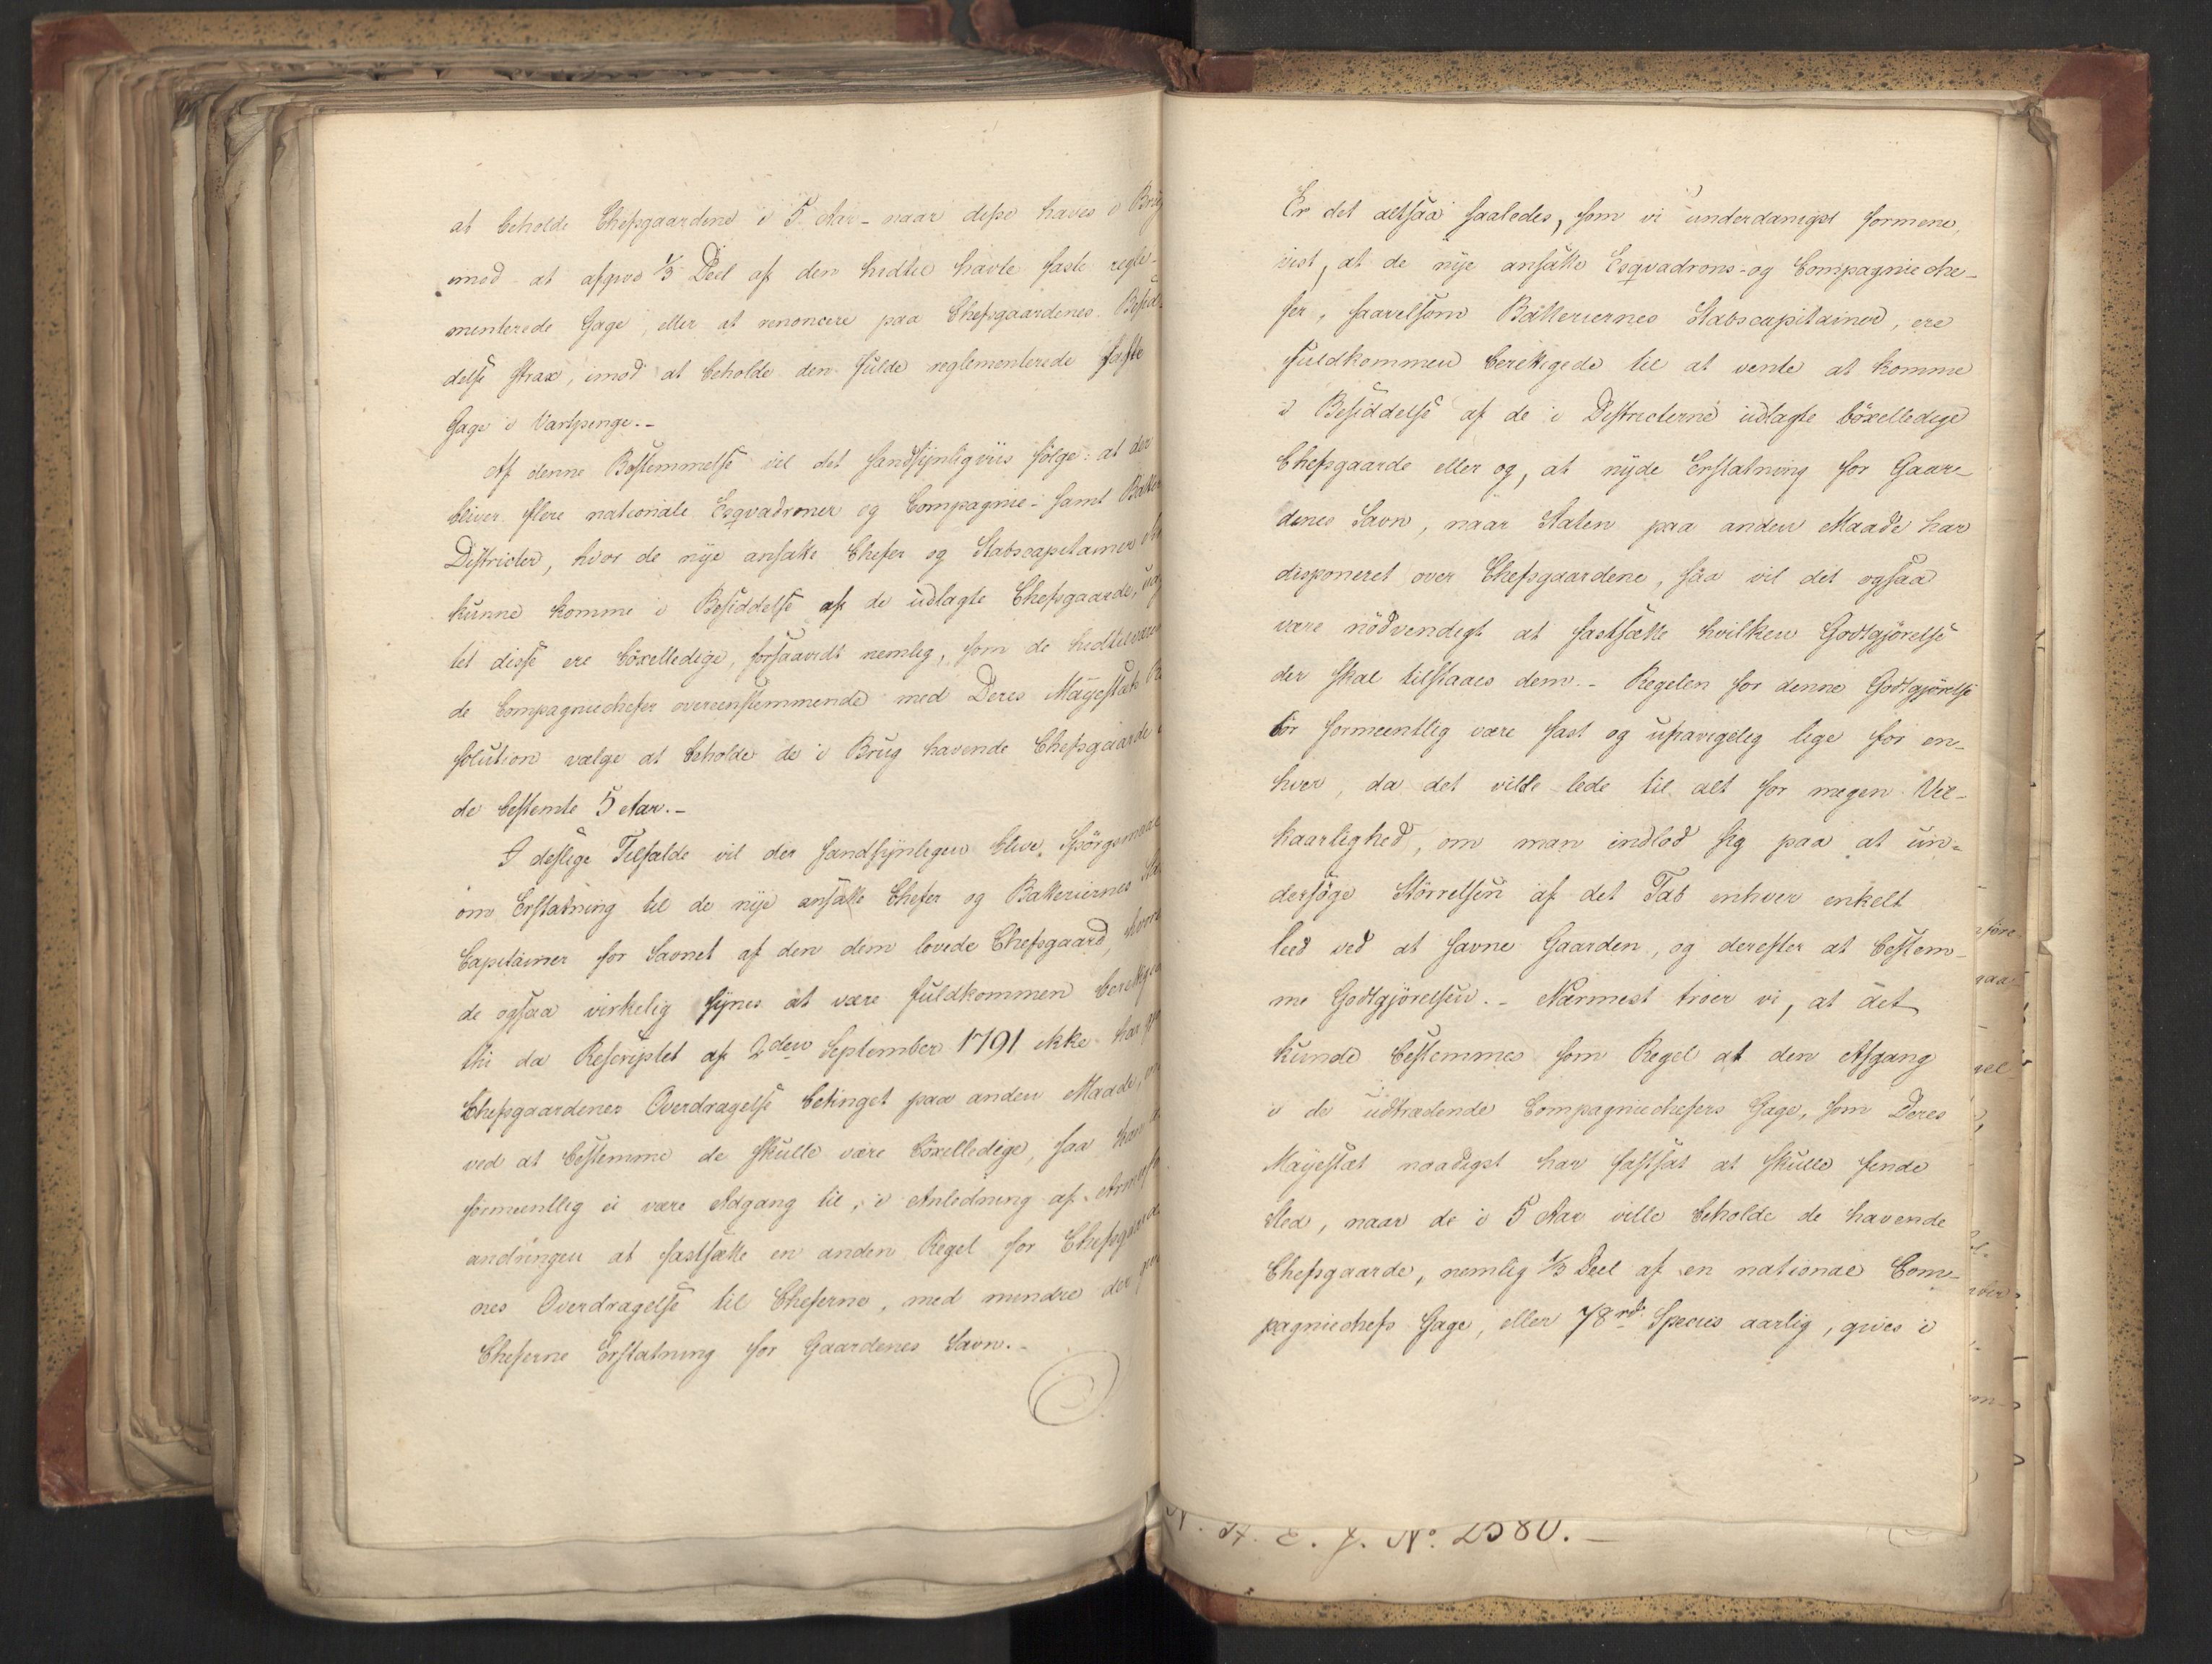 at beholde Chefsgaardene i 5 Aar - naar disse haves i Brug
imod at afgive 1/3 Deel af den hidtil havte faste regle-
menterede Gage, eller at renoncere paa Chefsgaardenes Besid-
delse strax, imod at beholde den fulde reglementerede faste
Gage i Vartpenge.-
Af denne Bestemmelse vil det sandsynligviis følge: at der
bliver flere nationale Esqvadroner og Compagnie- samt
Districter, hvor de nye ansatte Chefer og Stabscapitainer
kunne komme i Besiddelse af de udlagte Chefsgaarde,
tet disse ere böxelledige, forsaavidt nemlig, som de hidtilværen
de Compagniechefer overeenstemmende med Deres Majestæts Re
solution vælge at beholde de i Brug havende Chefsgaarde
de bestemte 5 Aar.-
I deslige Tilfælde vil der sandsynligen blive Spørgsmaal
om Erstatning til de nye ansatte Chefer og Batteriernes
Capitainer for Savnet af den dem lovede Chefsgaard,
de ogsaa virkelig synes at være fuldkommen
thi da Rescriptet af 2den September 1791 ikke har
Chefsgaardenes Overdragelse betinget paa anden Maade,
ved at bestemme de skulle være böxelledige, saa
formeentlig ei være Adgang til, i Anledning af
andringen at fastsætte en anden Regel for
nes Overdragelse til Cheferne, med mindre der
Cheferne Erstatning for Gaardenes Savn.-
Er det altsaa saaledes, som vi underdanigst formene,
vist, at de nye ansatte Esqvadrons- og Compagnieche-
fer, saavelsom Batteriernes Stabscapitainer, ere
fuldkommen berettigede til at vente at komme
i Besiddelse af de i Districterne udlagte böxelledige
Chefsgaarde eller og, at nyde Erstatning for Gaar-
denes Savn, naar Staten paa anden Maade har
disponeret over Chefsgaardene, saa vil det ogsaa
være nödvendigt at fastsætte hvilken Godtgjörelse
der skal tilstaaes dem.- Regelen for denne Godtgjörelse
bör formeentlig være fast og ufravigelig lige for en-
hver, da det vilde lede til alt for megen Vil-
kaarlighed, om man indlod sig paa at un-
dersöge Störrelsen af det Tab enhver enkelt
leed ved at savne Gaarden, og derefter at bestem-
me Godtgjörelsen.- Nærmest troer vi, at det
kunde bestemmes som Regel at den Afgang
i de udtrædende Compagniechefers Gage, som Deres
Majestæt naadigst har fastsat at skulle finde
Sted, naar de i 5 Aar ville beholde de havende
Chefsgaarde, nemlig 1/3 Deel af en national Com-
pagniechefs Gage, eller 78 rd. Species aarlig, gives i
N. A. E. J. No. 2580.-